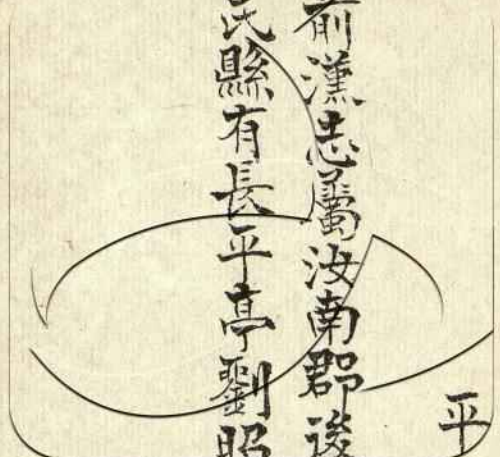 平
前漢志屬汝南郡後
氏縣有長平亭劉昭